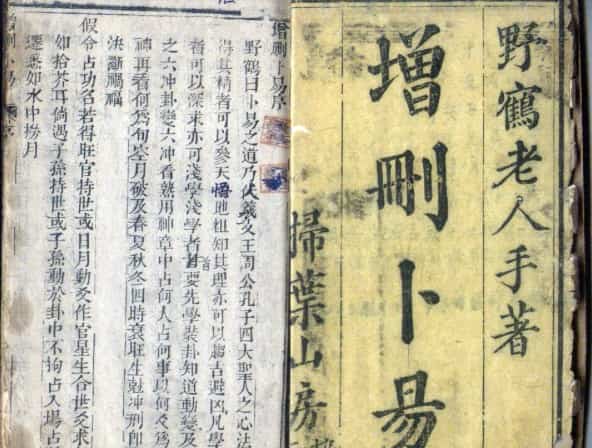 野鶴老人手著
增刪卜易
掃葉山房
增刪卜易序
野鶴曰卜易之道乃伏羲文王周公孔子四大聖人之心法
得其精者可以參天悟地粗知其理亦可以趨吉避凶凡學
者可以深求亦可淺學淺學者須要先學裝卦知道動變及
之六冲卦變六冲看熟用神章中占何人占何事以何爻爲
神再看何爲旬空月破及春夏秋冬四時衰旺生尅冲刑即
決斷禍福
假令占功名若得旺官持世或日月動爻作官星生合世爻求
如拾芥耳倘遇子孫持世或子孫動於卦中不拘占入塲占
遷悉如水中撈月
增刪卜易